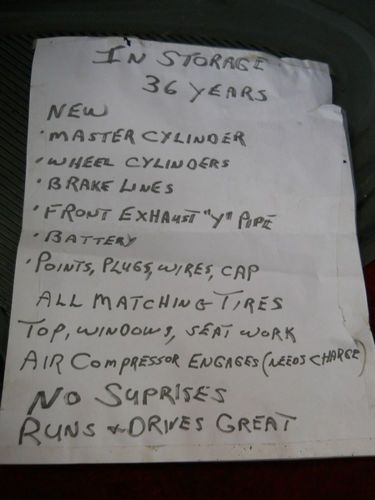 IN STORAGE
36 YEARS
NEW
• MASTER CYLINDER
• WHEEL CYLINDERS
• BRAKE LINES
• FRONT EXHAUST "Y" PIPE
• BATTERY
• POINTS, PLUGS, WIRES, CAP
ALL MATCHING TIRES
TOP, WINDOWS, SEAT WORK
AIR COMPRESSOR ENGAGES (NEEDS CHARGE)
NO SUPRISES
RUNS & DRIVES GREAT